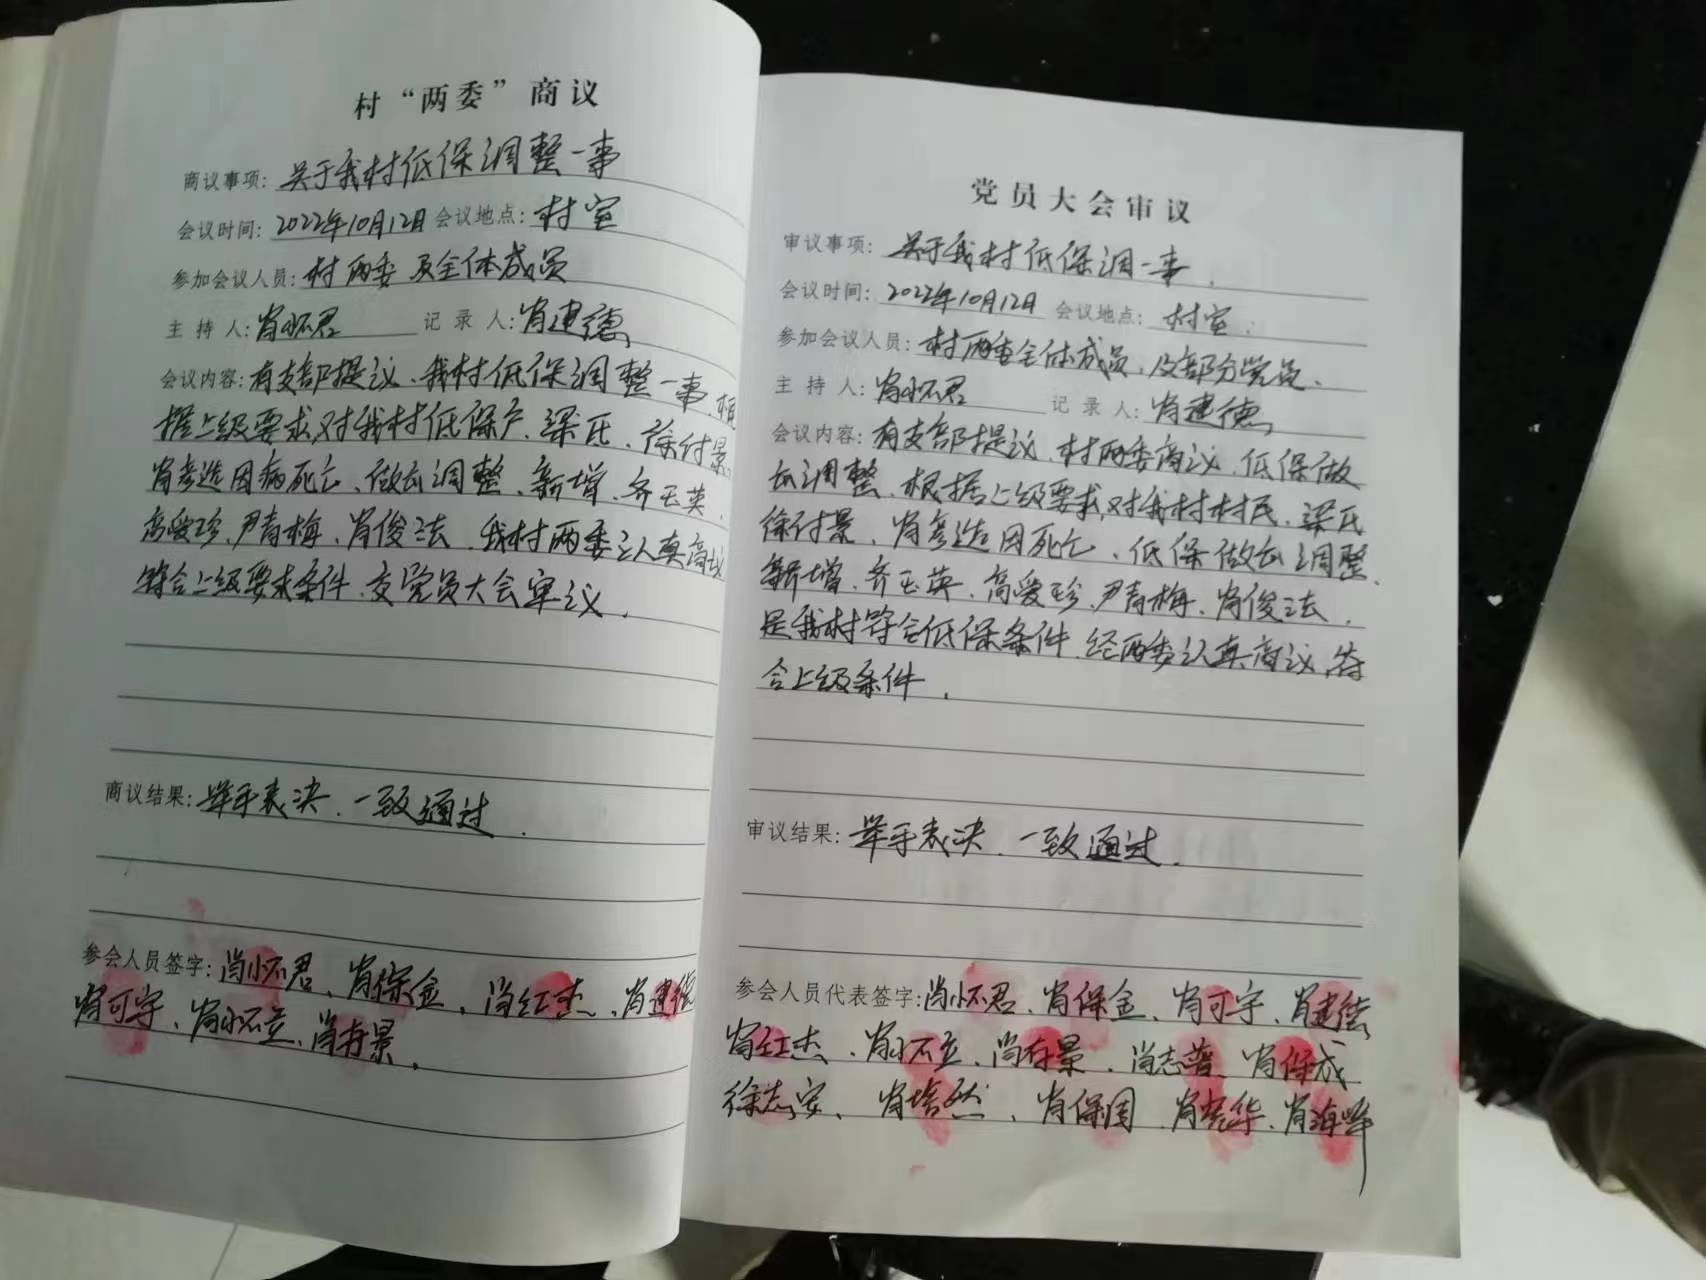 村“两委”商议
商议事项: 关于我村低保调整一事
会议时间: 2022年10月12日 会议地点: 村室
参加会议人员: 村两委及全体成员
主 持 人: 肖怀君 记 录 人: 肖建德
会议内容: 有支部提议、我村低保调整一事、根
据上级要求,对我村低保户、梁氏、徐付景、
肖彦造因病死亡、做出调整、新增、齐玉英、
高爱珍、尹青梅、肖俊法、我村两委认真商议
符合上级要求条件、交党员大会审议.
商议结果: 举手表决、一致通过.
参会人员签字: 肖怀君、肖保金、肖红杰、肖建德
肖可宇、肖怀立、肖存景.
党员大会审议
审议事项: 关于我村低保调一事.
会议时间: 2022年10月12日 会议地点: 村室.
参加会议人员: 村两委全体成员、及部分党员、
主 持 人: 肖怀君 记 录 人: 肖建德
会议内容: 有支部提议、村两委商议、低保做
出调整、根据上级要求,对我村村民、梁氏
徐付景、肖彦造因死亡、低保做出调整、
新增、齐玉英、高爱珍、尹青梅、肖俊法、
是我村符合低保条件、经两委认真商议,符
合上级条件.
审议结果: 举手表决、一致通过.
参会人员代表签字: 肖怀君、肖保金、肖可宇、肖建德
肖红杰、肖怀立、肖存景、肖志普 肖保成
徐志安、肖培然、肖保国、肖克华、肖海峰